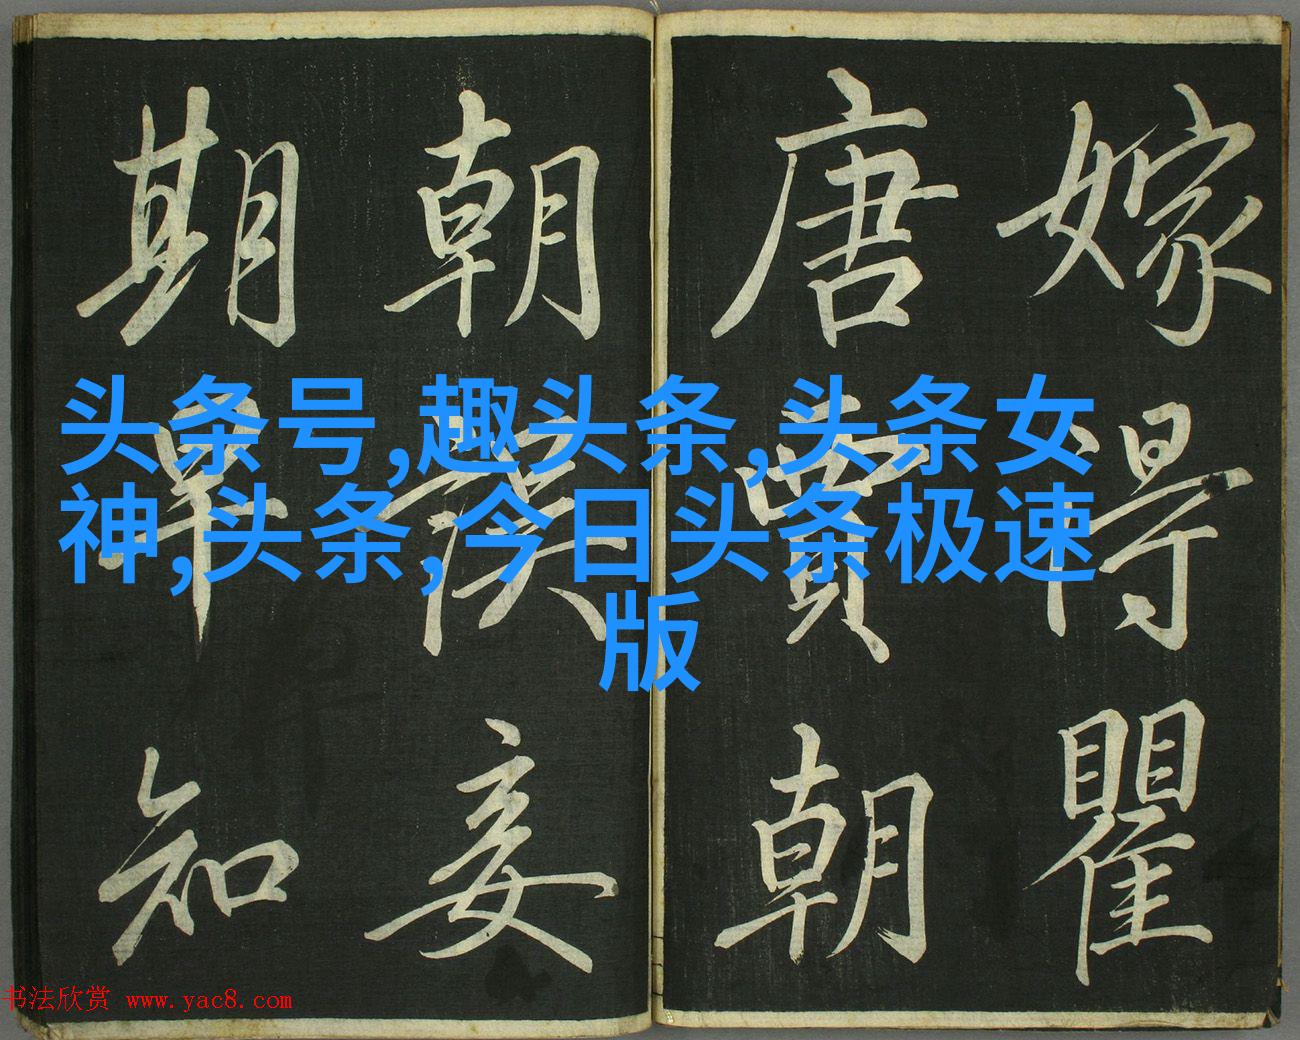 嫁得瞿
唐賈朝
朝誤妾
期早知
头条号,趣头条,头条女
神,头条,今日头条极速
版
书法欣赏 www.yac8.com